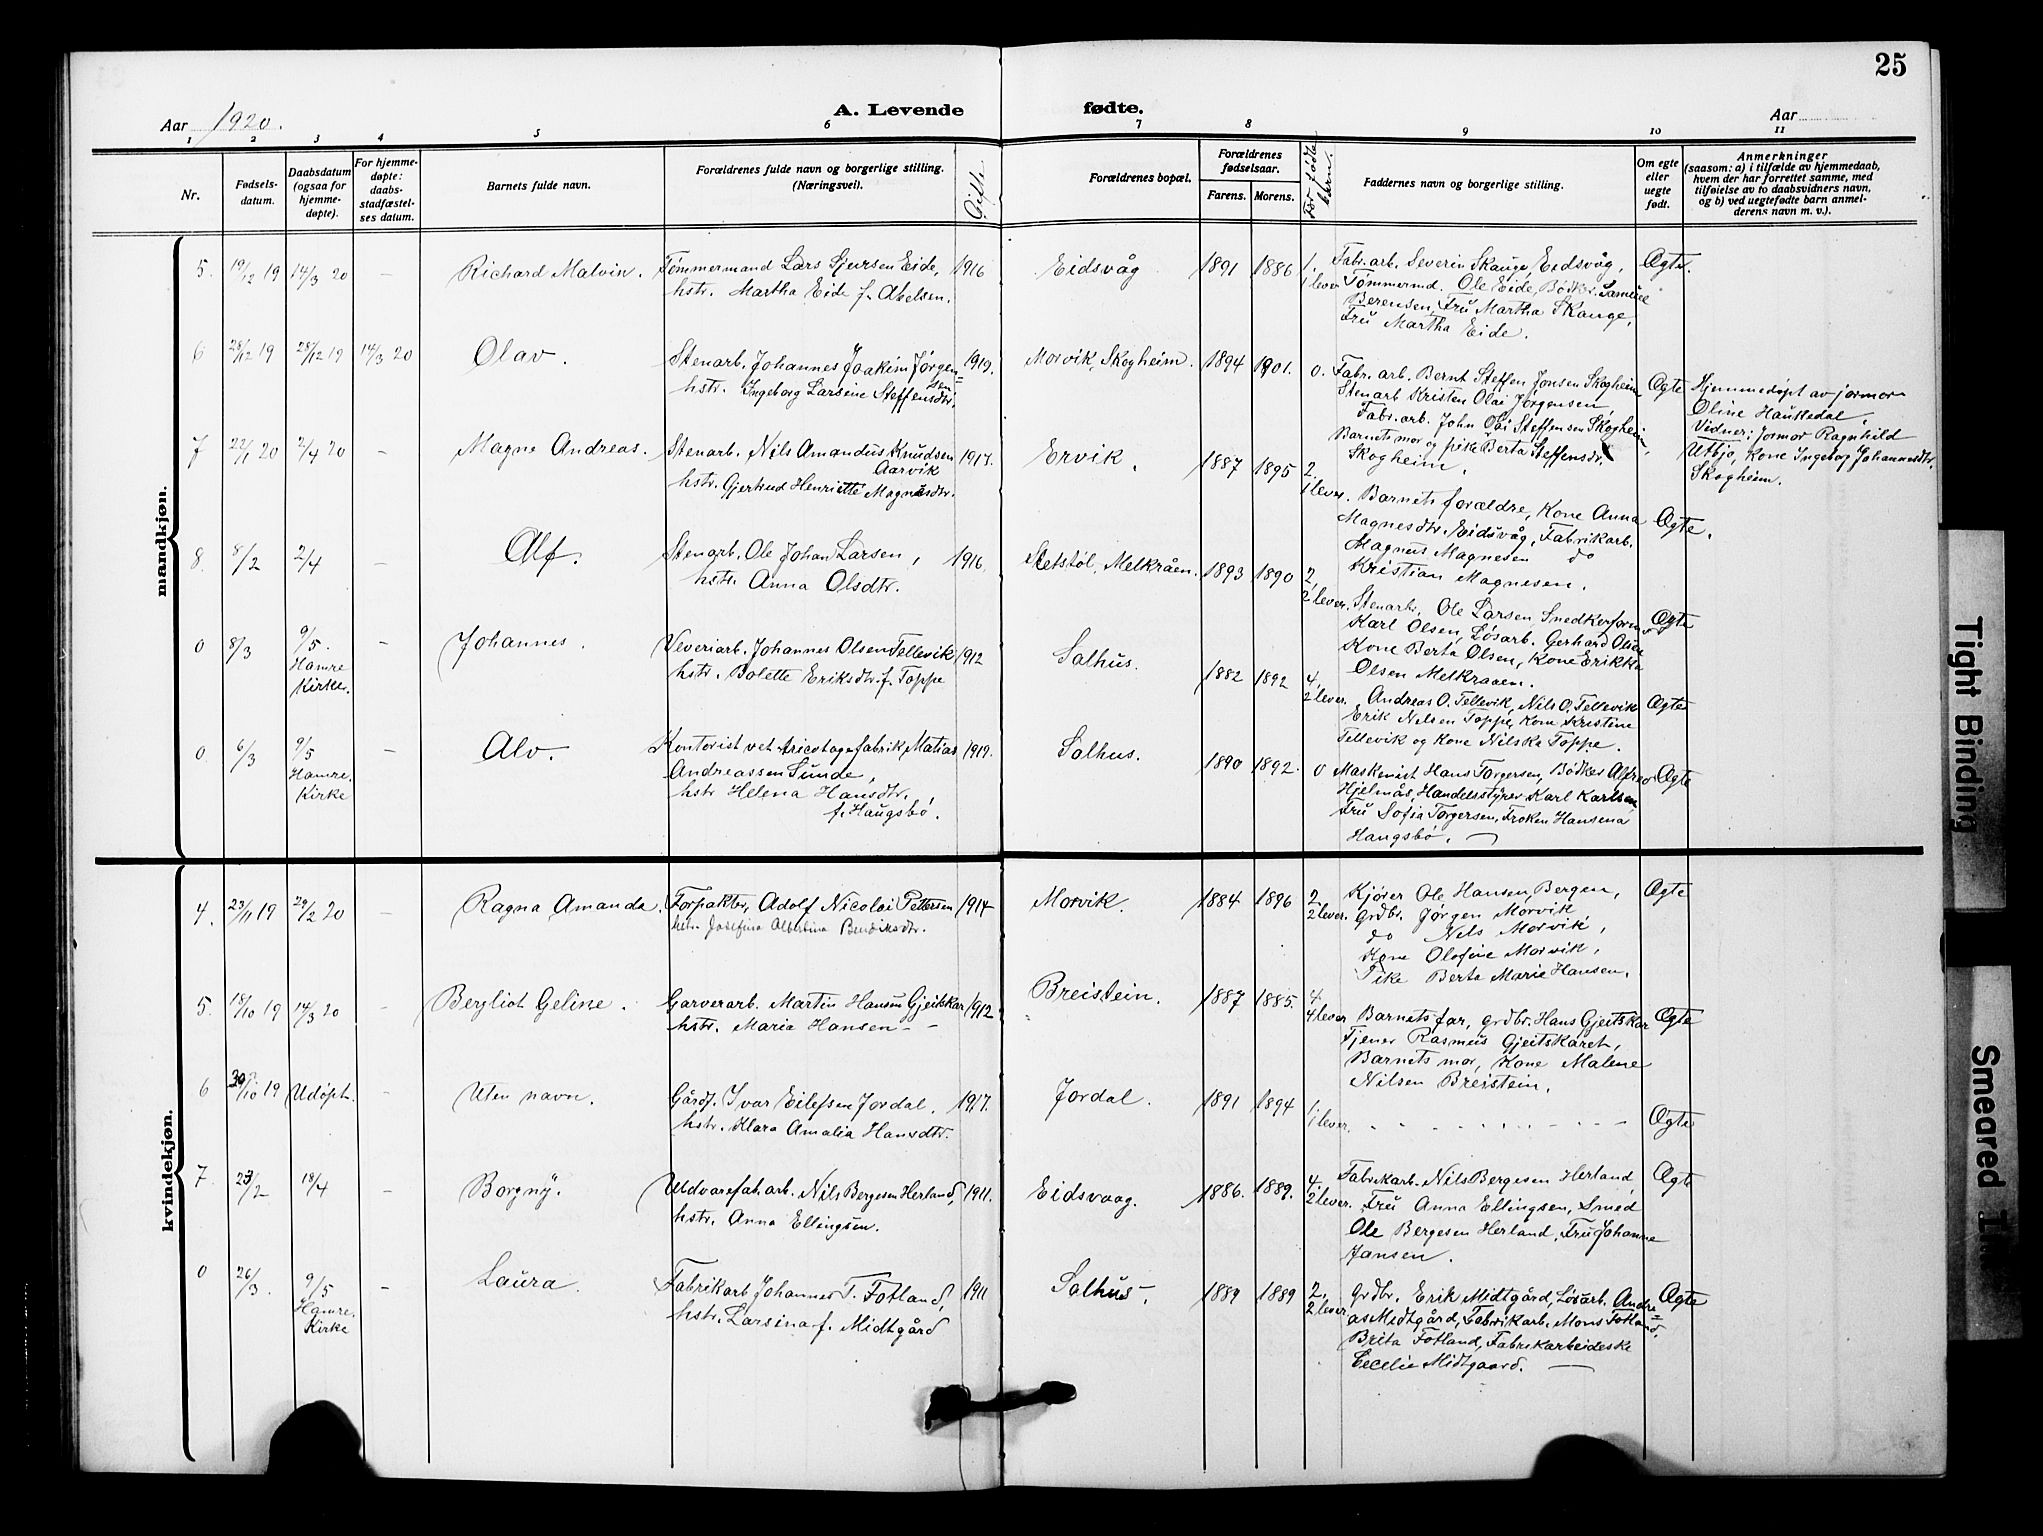 25
A. Levende fødte.
Aar 1920.
Aar
1 2 3 4 5 6 7 8 9 10 11
Nr.
Fødsels-
datum.
Daabsdatum
(ogsaa for
hjemme-
døpte).
For hjemme-
døpte:
daabs-
stadfæstel-
ses datum.
Barnets fulde navn.
Forældrenes fulde navn og borgerlige stilling.
(Næringsvei).
Gifte
Forældrenes bopæl.
Forældrenes
fødselsaar.
Farens. Morens.
Før fødte
barn.
Faddernes navn og borgerlige stilling.
Om egte
eller
uegte
født.
Anmerkninger
(saasom: a) i tilfælde av hjemmedaab,
hvem der har forrettet samme, med
tilføielse av to daabsvidners navn,
og b) ved uegtefødte barn anmel-
derens navn m. v.).
mandkjøn.
5. 19/12 19 14/3 20 - Richard Malvin. Tømmermand Lars Sjursen Eide, 1916 Eidsvåg 1891 1886 1.
hstr. Martha Eide f. Abelsen.
1 lever
Fabr. arb. Severin Skauge, Eidsvåg, Ægte.
Tømmermd. Ole Eide, Bødker Samuel
Berensen, Fru Martha Skauge,
Fru Martha Eide.
6 28/12 19 28/12 19 14/3 20 Olav. Stenarb. Johannes Joakim Jørgen= 1919. Morvik, Skogheim. 1894 1901. 0.
sen
hstr. Ingeborg Larsine Steffensdtr.
Fabr. arb. Bernt Steffen Jonsen Skogheim Ægte
Stenarb Kristen Olai Jørgensen
Fabr. arb. John Olai Steffensen Skogheim,
Barnets mor og pike Berta Steffensdr.
Skogheim.
Hjemmedøpt av jormor
Oline Haukedal,
Vidner: Jormor Ragnhild
Utbjo, Kone Ingebor Johannesdtr.
Skogheim.
7 22/1 20 2/4 20 - Magne Andreas. Stenarb. Nils Amandus Knudsen 1917. Ervik. 1887 1895 2.
Aarvik
hstr. Gjertrud Henriette Magnesdtr.
1 lever.
Barnets forældre, Kone Anna Ægte.
Magnesdtr. Eidsvåg, Fabrikarb.
Magnus Magnesen do
Kristian Magnesen.
8. 8/2 2/4 - Alf. Stenarb. Ole Johan Larsen, 1916. Sletstøl, Melkråen. 1893 1890 2,
hstr. Anna Olsdtr.
2 lever.
Stenarb. Ole Larsen, Smedkerform Ægte
Karl Olsen, Løsarb. Gerhard Olsen
Kone Berta Olsen, Kone Erikka
Olsen Melkraaen.
0 8/3 9/5. - Johannes. Veveriarb. Johannes Olsen Tellevik 1912 Salhus. 1882 1892 4,
Hamre
Kirke.
hstr. Bolette Eriksdtr. f. Toppe
2 lever.
Andreas O. Tellevik, Nils O. Tellevik Ægte
Erik Nilsen Toppe, Kone Kristine
Tellevik og Kone Nilska Toppe.
0. 6/3 9/5 - Alv. Kontorist vet tricotagefabrik Matias 1919. Salhus. 1890 1892. 0
Hamre.
Kirke
Andreassen Sunde,
hstr Helena Hansdtr.
f. Haugsbø.
Maskenist Hans Torgersen, Bødker Alfred Ægte
Hjelmås, Handelsstyrer Karl Karlsen
Fru Sofia Torgersen, Frøken Hansena
Haugsbø.
kvindekjøn.
4. 23/11 19 29/2 20 - Ragna Amanda. Forpakter, Adolf Nicolai Pettersen 1914 Morvik. 1884 1896 2
hstr. Josefina Albertina Bendiksdtr.
2 lever.
Kjører Ole Hansen, Bergen, Ægte
grdbr. Jørgen Morvik
do Nels Morvik,
Kone Olofine Morvik,
Pike Berta Marie Hansen.
5. 18/10 19 14/3 20 - Bergliot Geline. Garverarb. Martin Hansen Gjeitskar 1912 Breistein. 1887 1885. 4
hstr. Maria Hansen - -
4 lever
Barnets far, grdbr. Hans Gjeitskar Ægte
Tjener Rasmus Gjeitskaret,
Barnets mor, Kone Malene
Nilsen Breistein.
6 30/10 19 Udøpt. - Uten navn. Gårdf. Ivar Eilefsen Jordal. 1917. Jordal. 1891 1894 1.
hstr. Klara Amalia Hansdtr.
1 lever. - - - - - - - - - Ægte
7. 23/2 18/4 - Borgny. Uldvarefab. arb. Nils Bergesen Herland, 1911. Eidsvaag. 1886. 1889. 4,
hstr. Anna Ellingsen.
2 lever.
Fabrikarb. Nils Bergesen Herland, Ægte
Fru Anna Ellingsen, Smed
Ole Bergesen Herland, Fru Johanne
Jansen.
0 26/3. 9/5 - Laura. Fabrikarb Johannes T. Fotland, 1911 Salhus. 1889 1889 2,
Hamre.
Kirke
hstr. Larsina f. Midtgård
2 lever
Grdbr. Erik Midtgård, Løsarb. Andre= Ægte
as Midtgård, Fabrikarb. Mons Fotland,
Brita Fotland, Fabrikarbeideske
Cecelie Midtgaard.
Tight Binding
Smeared